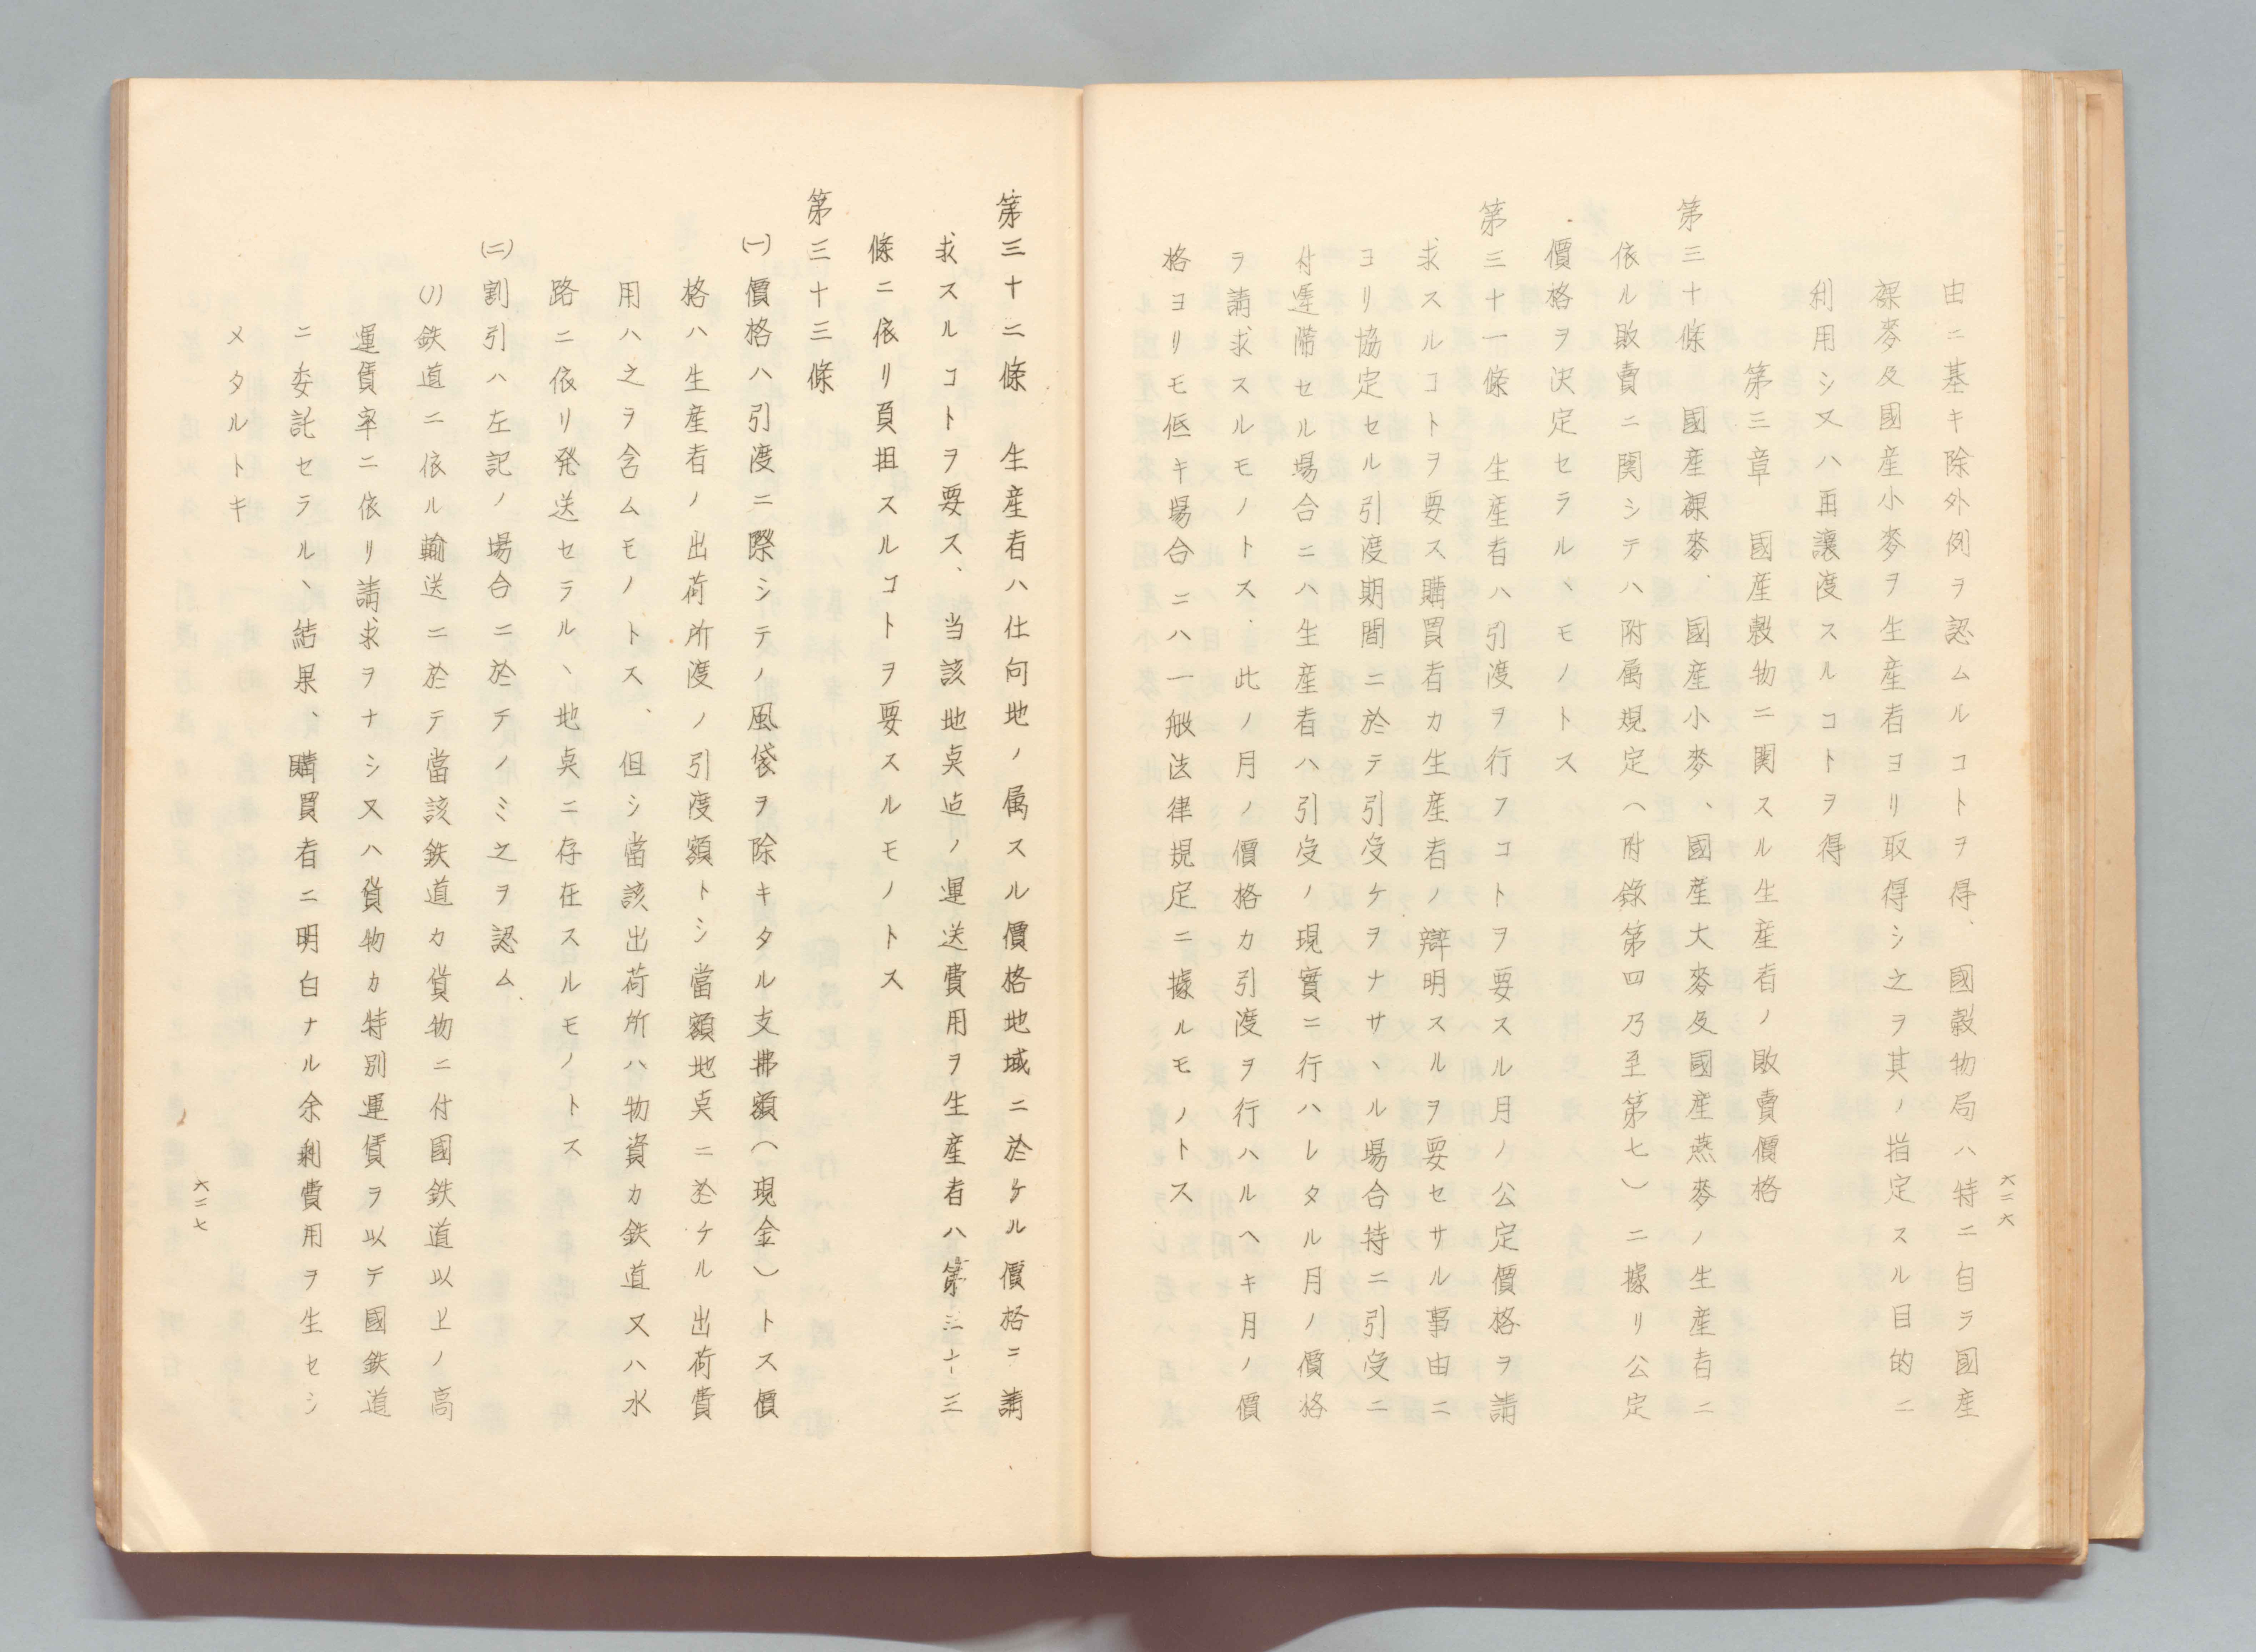 六二六
由ニ基キ除外例ヲ認ムルコトヲ得、國穀物局ハ特ニ自ラ國産
裸麥及國産小麥ヲ生産者ヨリ取得シ之ヲ其ノ指定スル目的ニ
利用シ又ハ再讓渡スルコトヲ得
第三章　國産穀物ニ関スル生産者ノ敗賣價格
第三十條　國産裸麥、國産小麥、國産大麥及國産燕麥ノ生産者ニ
依ル敗賣ニ関シテハ附属規定（附錄第四乃至第七）ニ據リ公定
價格ヲ決定セラルヽモノトス
第三十一條　生産者ハ引渡ヲ行フコトヲ要スル月ノ公定價格ヲ請
求スルコトヲ要ス購買者カ生産者ノ辯明スルヲ要セサル事由ニ
ヨリ協定セル引渡期間ニ於テ引受ケヲナサヽル場合特ニ引受ニ
付遲滯セル場合ニハ生産者ハ引受ノ現實ニ行ハレタル月ノ價格
ヲ請求スルモノトス、此ノ月ノ價格カ引渡ヲ行ハルヘキ月ノ價
格ヨリモ低キ場合ニハ一般法律規定ニ據ルモノトス
第三十二條　生産者ハ仕向地ノ属スル價格地域ニ於ケル價格ニ請
求スルコトヲ要ス、当該地奌迠ノ運送費用ヲ生産者ハ第三十三
條ニ依リ負担スルコトヲ要スルモノトス
第三十三條
(一)價格ハ引渡ニ際シテノ風袋ヲ除キタル支拂額（現金）トス價
格ハ生産者ノ出荷所渡ノ引度額トシ當額地奌ニ於ケル出荷費
用ハ之ヲ含ムモノトス、但シ當該出荷所ハ物資カ鉄道又ハ水
路ニ依リ発送セラルヽ地奌ニ存在スルモノトス
(二)割引ハ左記ノ場合ニ於テノミ之ヲ認ム、
(ｲ)鉄道ニ依ル輸送ニ於テ當該鉄道カ貨物ニ付國鉄道以上ノ高
運賃率ニ依リ請求ヲナシ又ハ貨物カ特別運賃ヲ以テ國鉄道
ニ委託セラルヽ結果、購買者ニ明白ナル余剰費用ヲ生セシ
メタルトキ
六二七